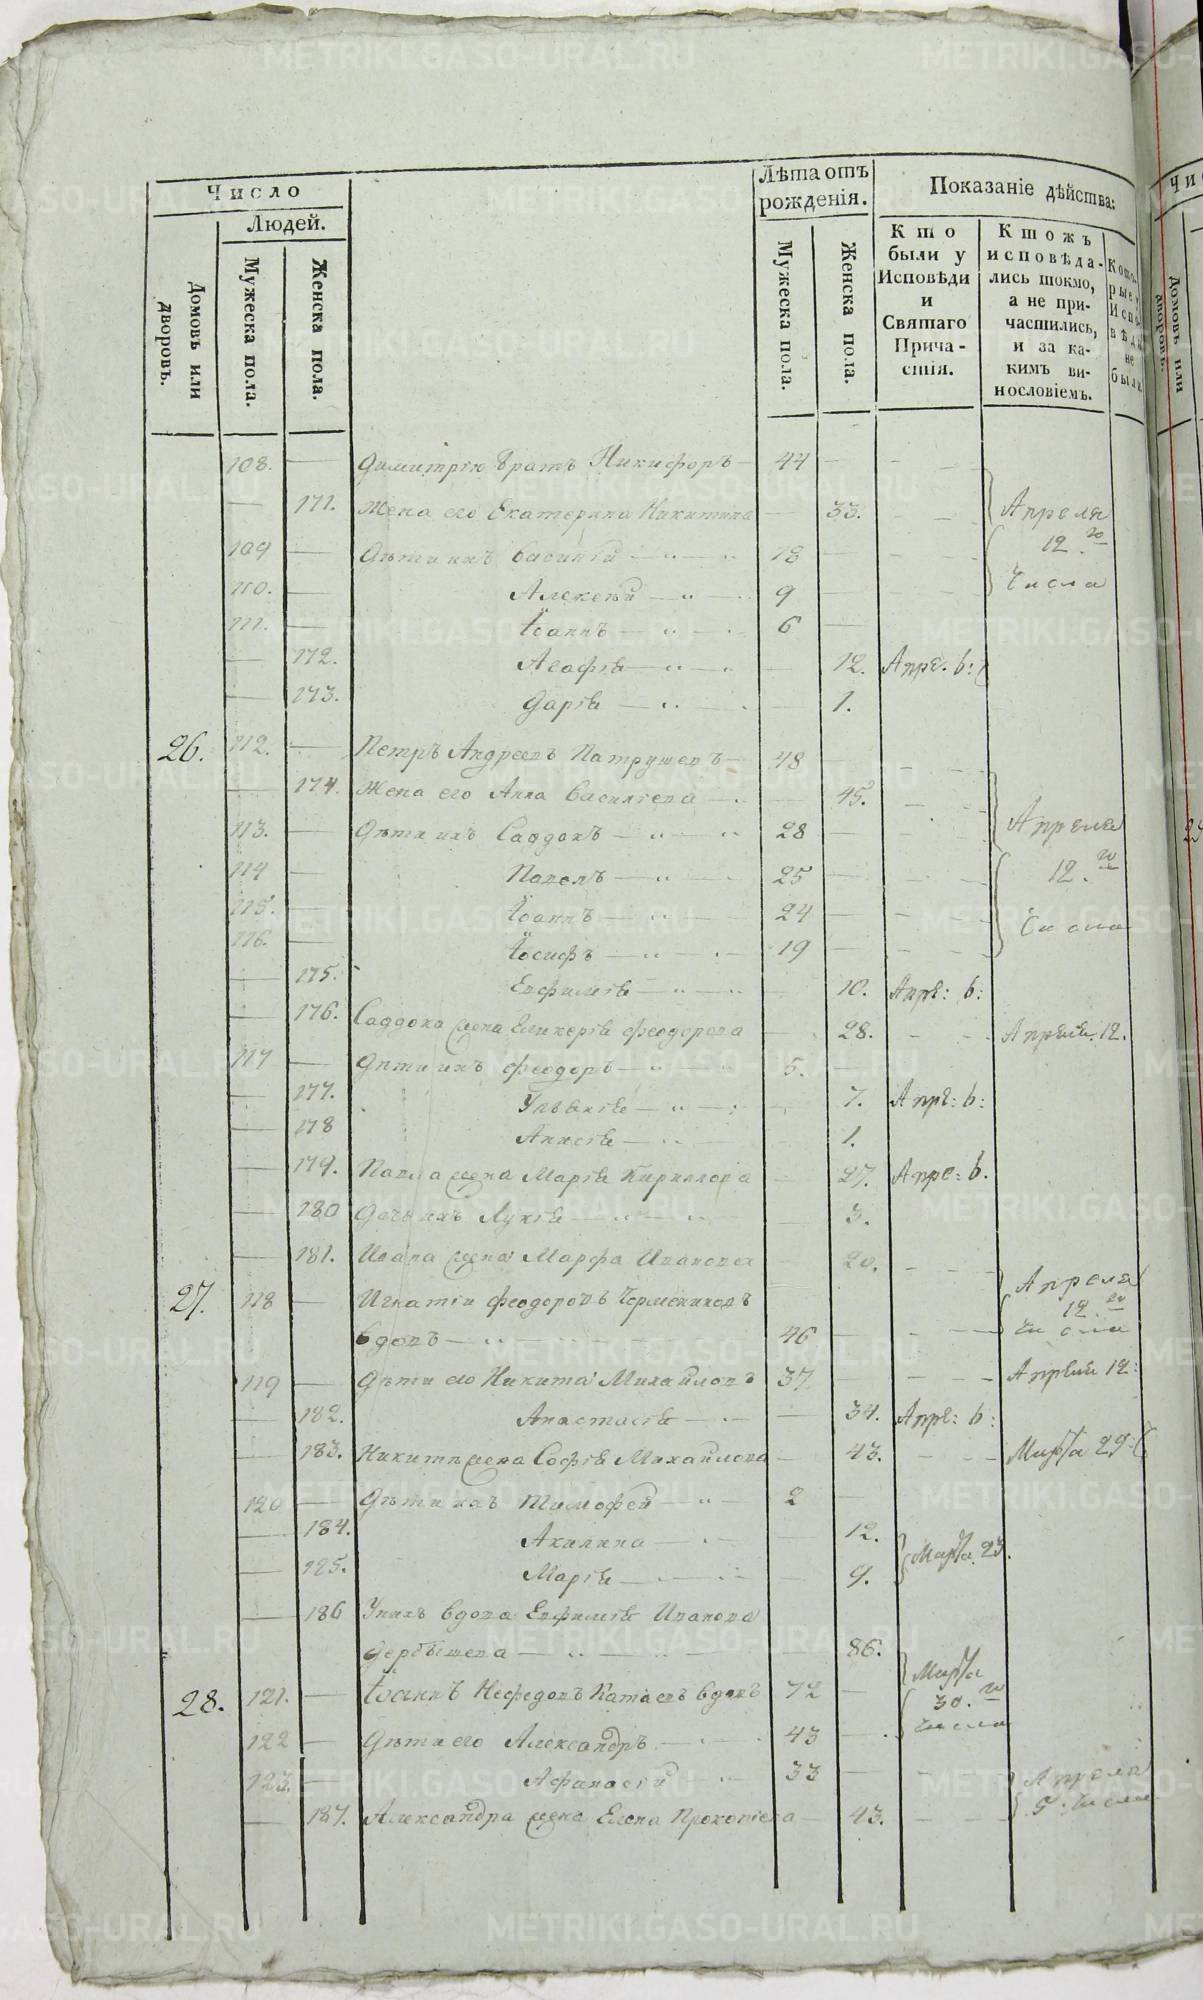 Число
Людей.
Домовъ или дворовъ.
Мужеска пола.
Женска пола.
Лѣта отъ рожденія.
Мужеска пола.
Женска пола.
Показаніе дѣйства:
Кто были у Исповѣди и Святаго Причастія.
Ктожъ исповѣдались токмо, а не причастились, и за какимъ винословіемъ.
Которые у Исповѣди не были
108. — Димитрія братъ Никифоръ — 44 —
— 171. Жена его Екатерина Никитина — 33. Апреля
109 — Дѣти ихъ Василій — 18 — 12.го
110. — Алексѣй — 9 — Числа
111. — Іоаннъ — 6 —
— 172. Агафія — 12. Апре. 6:
— 173. Дарія — 1.
26. 112. — Петръ Андреевъ Патрушевъ — 48 —
— 174. Жена его Анна Василіева — 45.
113. — Дѣти ихъ Саддокъ — 28 Апреля
114 — Павелъ — 25 — 12.го
115. — Іоаннъ — 24 — Числа
116. — Іосифъ — 19 —
— 175. Евфимія — 10. Апре: 6:
— 176. Саддока жена Гликерія Феодорова — 28. Апреля. 12.
117 — Дѣти ихъ Феодоръ — 5. —
— 177. Ульянія — 7. Апре: 6:
— 178 Анисія — 1.
— 179. Павла жена Марія Кириллова — 27. Апре: 6.
— 180 Дочь ихъ Лукія — 3.
— 181. Ивана жена Марфа Иванова 20.
27. 118 — Игнатій Феодоровъ Апреля 12.го
вдовъ — 46 Числа
119 — Дѣти его Никита Михайловъ 37 — Апреля 12:
— 182. Анастасія — 34. Апре: 6:
— 183. Никиты жена Софія Михайлова — 43. Марта 29:
120 — Дѣти ихъ Тимофей — 2 —
— 184. Акилина — 12.
— 185. Марія — 9. Марта. 23.
— 186 У нихъ вдова Евфимія Иванова
Дербышева — 86.
28. 121. — Іоаннъ Нефедовъ Катаевъ вдовъ 72 — Марта 30.го
122 — Дѣти его Александръ — 43 — Числа
123. — Афанасій — 33 — Апреля
— 187. Александра жена Елена Прокопіева — 43. Числа
METRIKI.GASO-URAL.RU